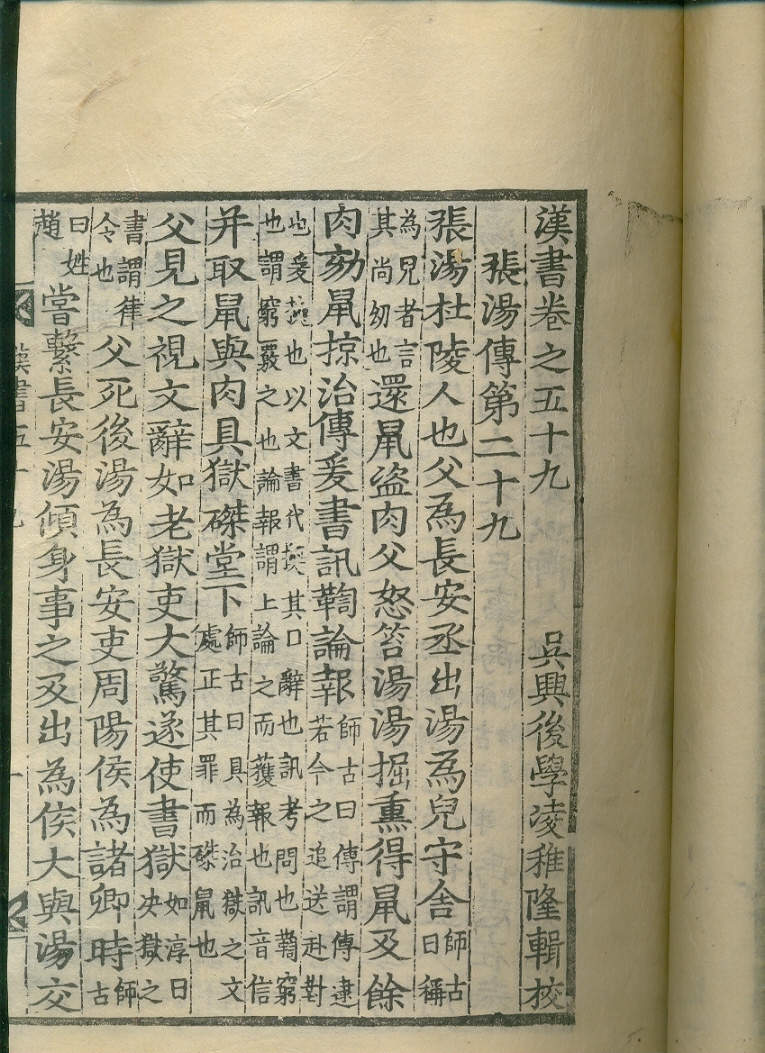 漢書卷之五十九 吳興後學凌稚隆輯挍
張湯傳第二十九
張湯杜陵人也父為長安丞出湯為兒守舍師古曰稱
為兒者言其尚幼也還鼠盜肉父怒笞湯湯掘熏得鼠及餘
肉劾鼠掠治傳爰書訊鞫論報師古曰傳謂傳逮若今之追送赴對
也爰換也以文書代換其口辭也訊考問也鞫窮也謂窮覈之也論報謂上論之而獲報也訊音信
并取鼠與肉具獄磔堂下師古曰具為治獄之文處正其罪而磔鼠也
父見之視文辭如老獄吏大驚遂使書獄如淳曰决獄之
書謂律令也父死後湯為長安吏周陽侯為諸卿時師古
曰姓趙嘗繫長安湯傾身事之及出為侯大與湯交
漢書五十九